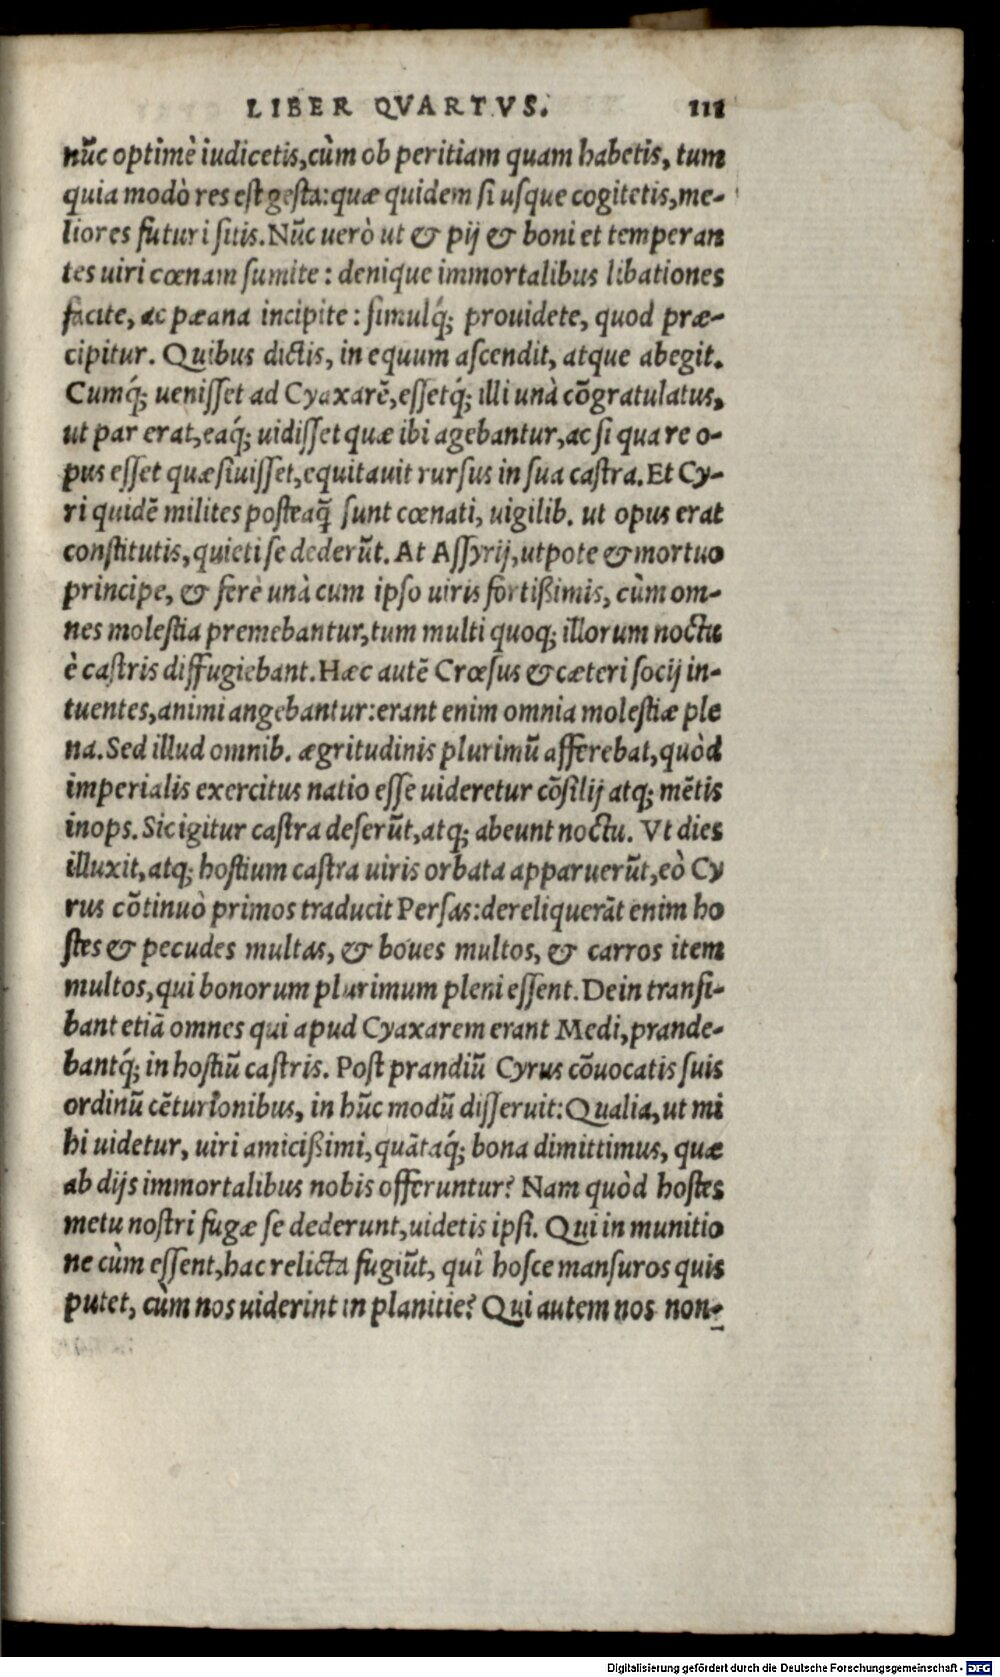 LIBER QVARTVS. 111
nũc optimè iudicetis, cùm ob peritiam quam habetis, tum
quia modò res est gesta: quæ quidem si usque cogitetis, me-
liores futuri sitis. Nũc uerò ut & pij & boni et temperan
tes uiri cœnam sumite: denique immortalibus libationes
facite, ac pæana incipite: simulq́; prouidete, quod præ-
cipitur. Quibus dictis, in equum ascendit, atque abegit.
Cumq́; uenisset ad Cyaxarẽ, essetq́; illi unà cõgratulatus,
ut par erat, eaq́; uidisset quæ ibi agebantur, ac si qua re o-
pus esset quæsiuisset, equitauit rursus in sua castra. Et Cy-
ri quidẽ milites posteaq̃ sunt cœnati, uigilib. ut opus erat
constitutis, quieti se dederũt. At Assyrij, utpote & mortuo
principe, & ferè unà cum ipso uiris fortißimis, cùm om-
nes molestia premebantur, tum multi quoq; illorum noctu
è castris diffugiebant. Hæc autẽ Crœsus & cæteri socij in-
tuentes, animi angebantur: erant enim omnia molestiæ ple
na. Sed illud omnib. ægritudinis plurimũ afferebat, quòd
imperialis exercitus natio esse uideretur cõsilij atq; mẽtis
inops. Sic igitur castra deserũt, atq; abeunt noctu. Vt dies
illuxit, atq; hostium castra uiris orbata apparuerũt, eò Cy
rus cõtinuò primos traducit Persas: dereliquerãt enim ho
stes & pecudes multas, & boues multos, & carros item
multos, qui bonorum plurimum pleni essent. Dein transi-
bant etiã omnes qui apud Cyaxarem erant Medi, prande-
bantq́; in hostiũ castris. Post prandiũ Cyrus cõuocatis suis
ordinũ cẽturionibus, in hũc modũ disseruit: Qualia, ut mi
hi uidetur, uiri amicißimi, quãtaq́; bona dimittimus, quæ
ab dijs immortalibus nobis offeruntur? Nam quòd hostes
metu nostri fugæ se dederunt, uidetis ipsi. Qui in munitio
ne cùm essent, hac relicta fugiũt, quî hosce mansuros quis
putet, cùm nos uiderint in planitie? Qui autem nos non-
Digitalisierung gefördert durch die Deutsche Forschungsgemeinschaft - DFG